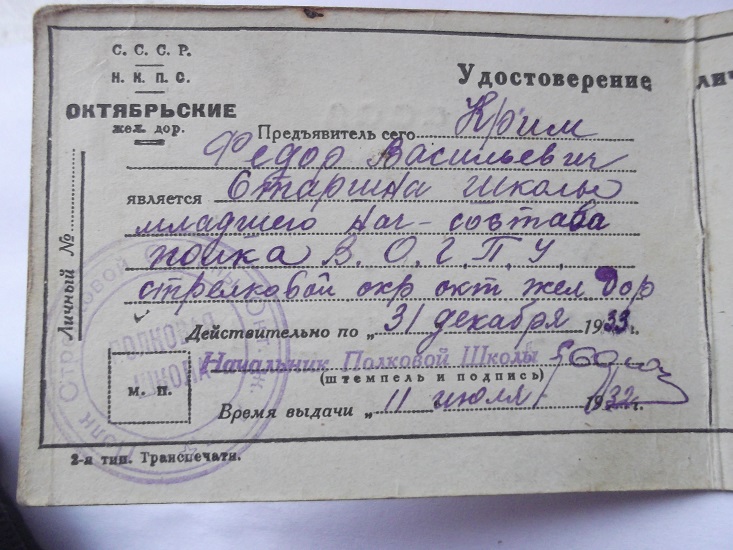 С. С. С. Р.
Н. К. П. С.
ОКТЯБРЬСКИЕ
жел. дор.
Удостоверение
Предъявитель сего Крим
Федор Васильевич
является Старшина школы
младшего нач-состава
полка В. О. Г. П. У.
стрелковой охр окт жел. дор
Действительно по „31 декабря 1933 г.
Начальник Полковой Школы
(штемпель и подпись)
М. П.
Время выдачи „11 июля 1932 г.
Личный №
ПОЛКОВАЯ
ШКОЛА
2-я тип. Транспечати.